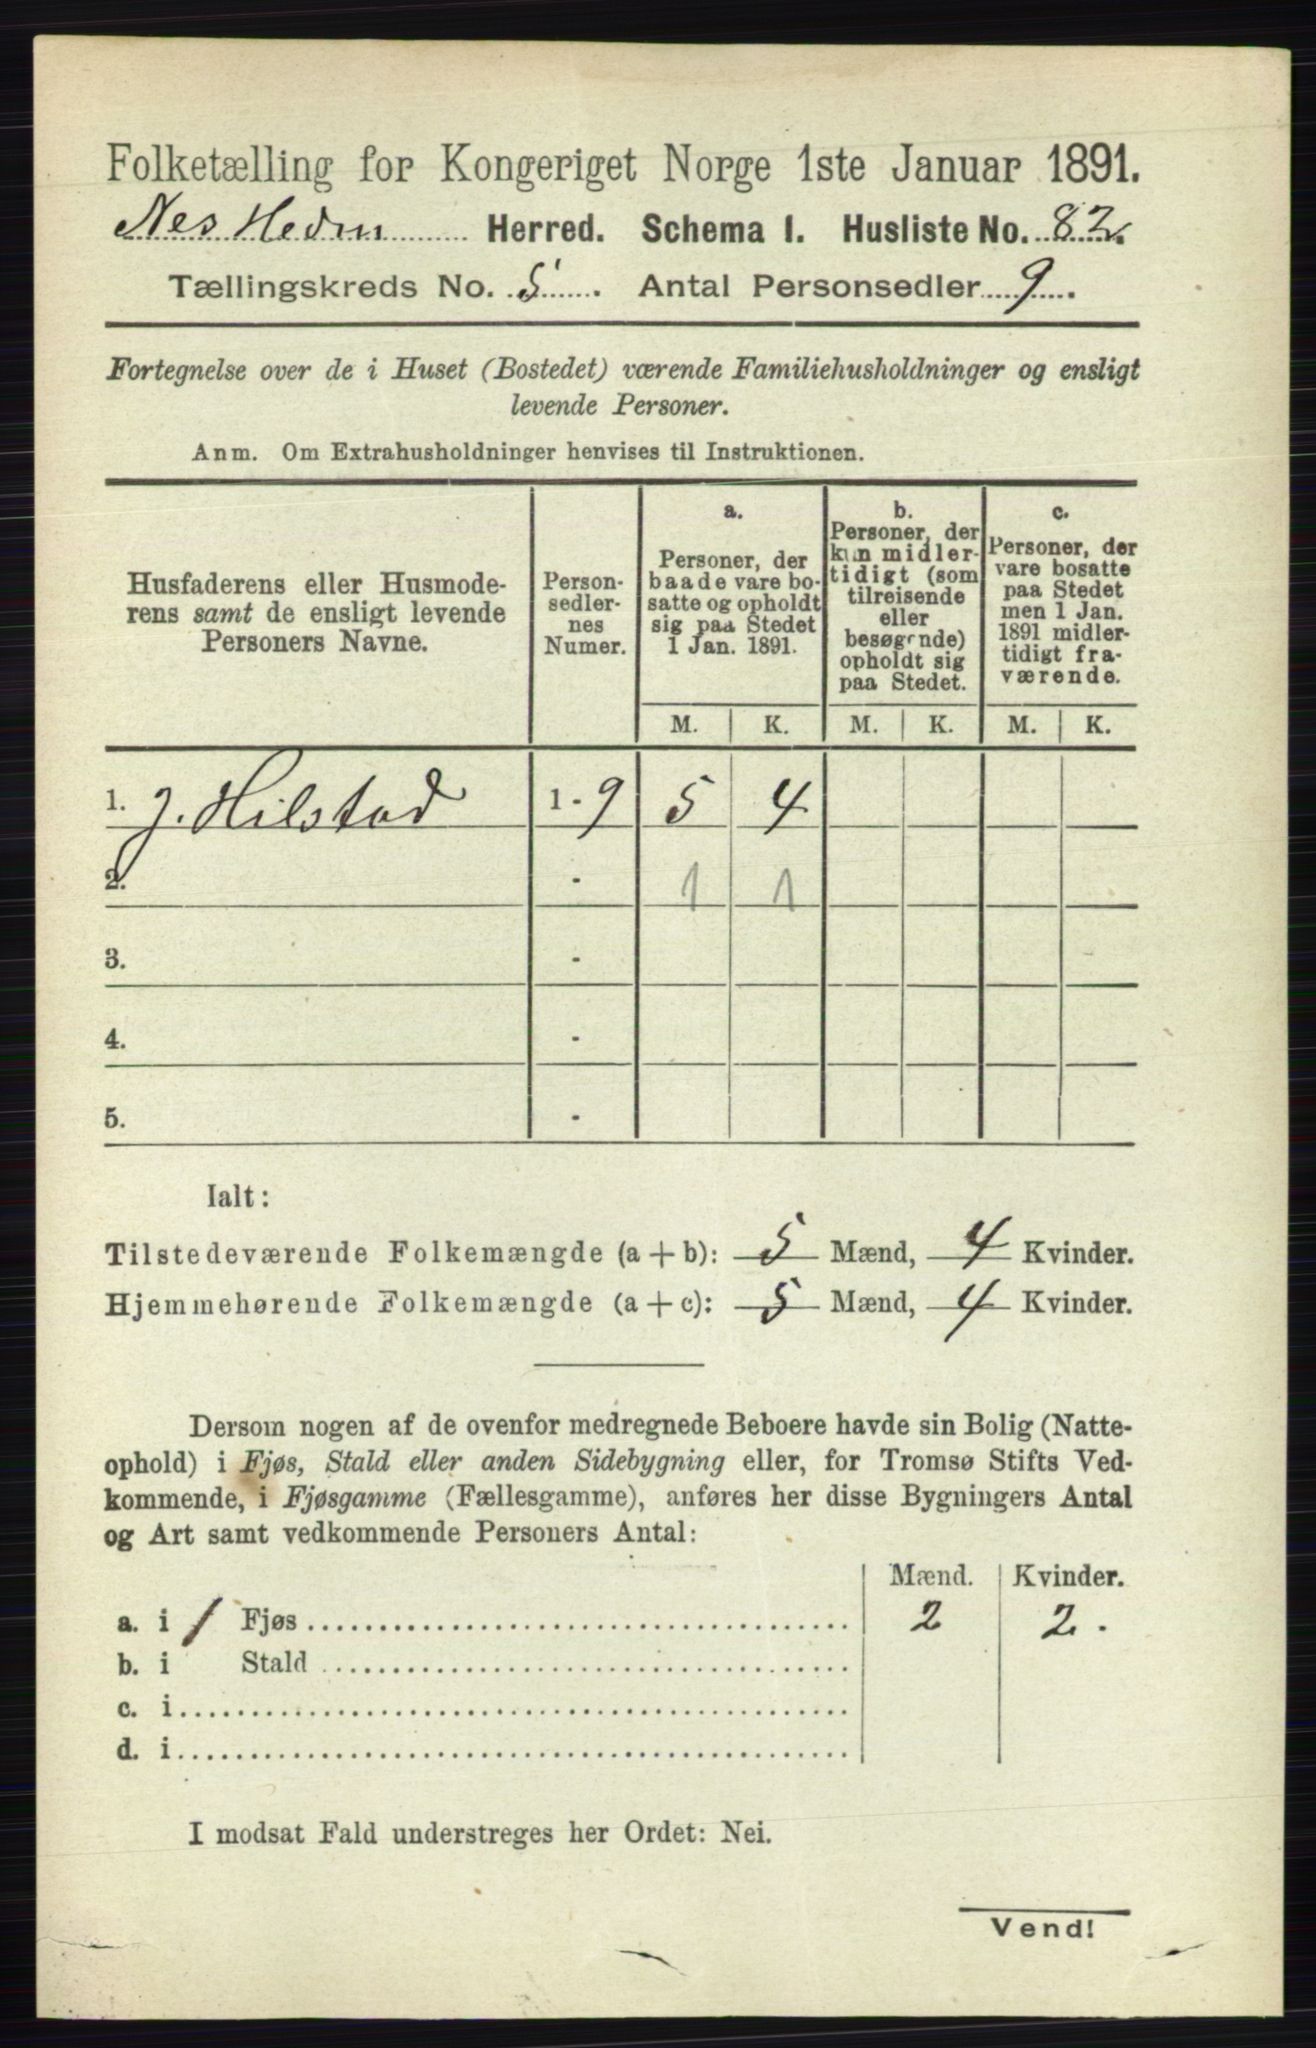 Folketælling for Kongeriget Norge 1ste Januar 1891.
Nes Hedm Herred. Schema I. Husliste No. 82.
Tællingskreds No. 5. Antal Personsedler 9.
Fortegnelse over de i Huset (Bostedet) værende Familiehusholdninger og ensligt
levende Personer.
Anm. Om Extrahusholdninger henvises til Instruktionen.
Husfaderens eller Husmode-
rens samt de ensligt levende
Personers Navne.
Person-
sedler-
nes
Numer.
a.
Personer, der
baade vare bo-
satte og opholdt
sig paa Stedet
1 Jan. 1891.
b.
Personer, der
kun midler-
tidigt (som
tilreisende
eller
besøgende)
opholdt sig
paa Stedet.
c.
Personer, der
vare bosatte
paa Stedet
men 1 Jan.
1891 midler-
tidigt fra-
værende.
M. K. M. K. M. K.
1. J. Hilstad 1 - 9 5 4
2. - 1 1
3. -
4. -
5. -
Ialt:
Tilstedeværende Folkemængde (a + b): 5 Mænd, 4 Kvinder.
Hjemmehørende Folkemængde (a + c): 5 Mænd, 4 Kvinder.
Dersom nogen af de ovenfor medregnede Beboere havde sin Bolig (Natte-
ophold) i Fjøs, Stald eller anden Sidebygning eller, for Tromsø Stifts Ved-
kommende, i Fjøsgamme (Fællesgamme), anføres her disse Bygningers Antal
og Art samt vedkommende Personers Antal:
Mænd. Kvinder.
a. i 1 Fjøs 2 2.
b. i Stald
c. i
d. i
I modsat Fald understreges her Ordet: Nei.
Vend!